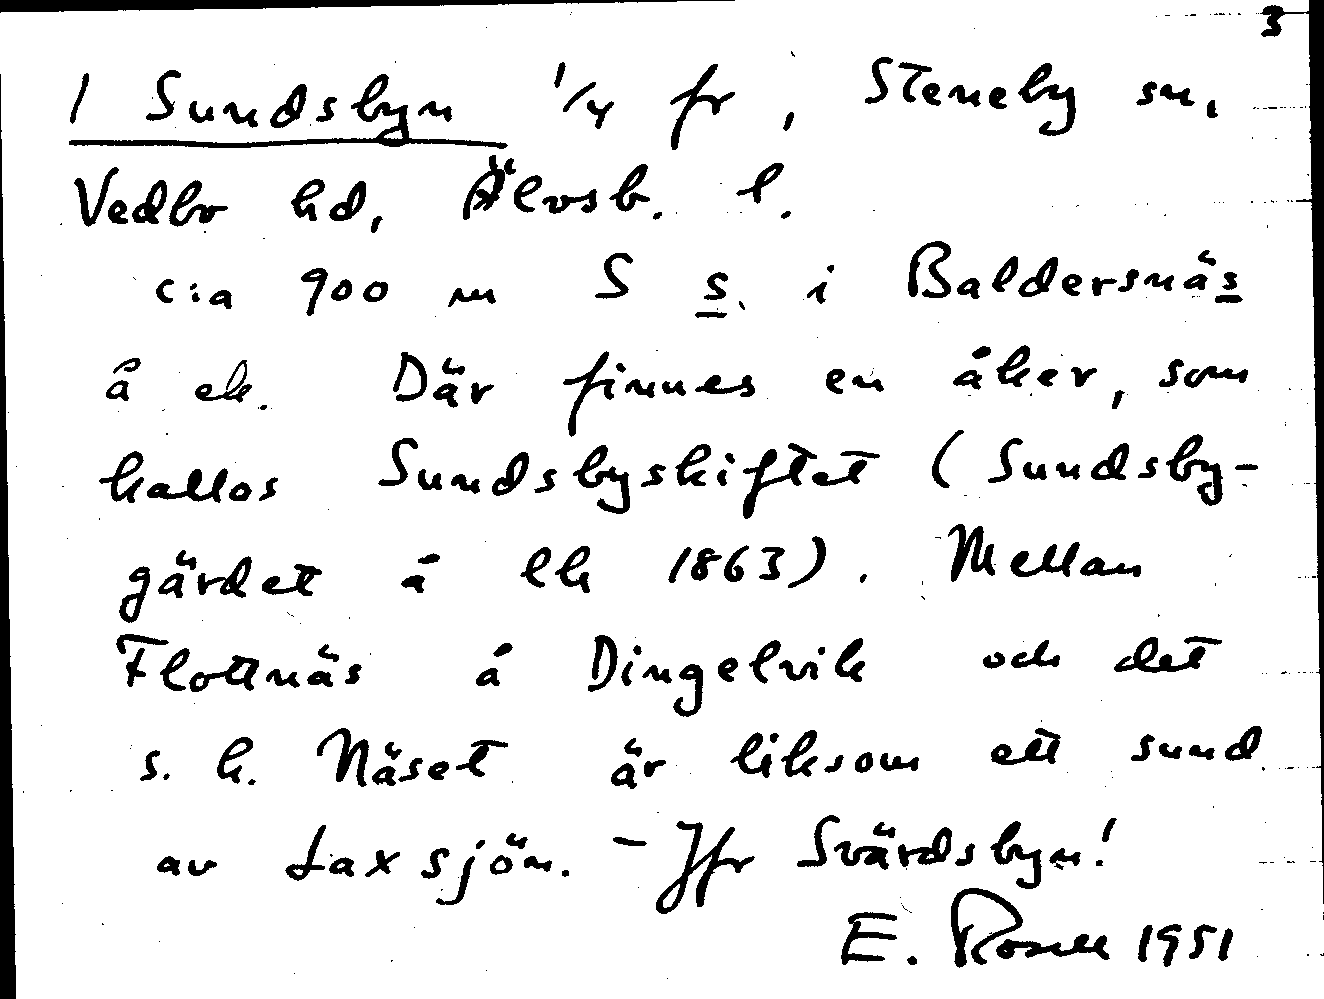 3
1 Sundsbyn 1/4 fr, Steneby sn,
Vedbo hd, Älvsb. l.
c:a 900 m S s. i Baldersnäs
å ek. Där finnes en åker, som
kallas Sundsbyskiftet (Sundsby-
gärdet å lk 1863). Mellan
Flottnäs å Dingelvik och det
s. k. Näset är liksom ett sund
av Laxsjön. - Jfr Svärdsbyn!
E. Rosell 1951